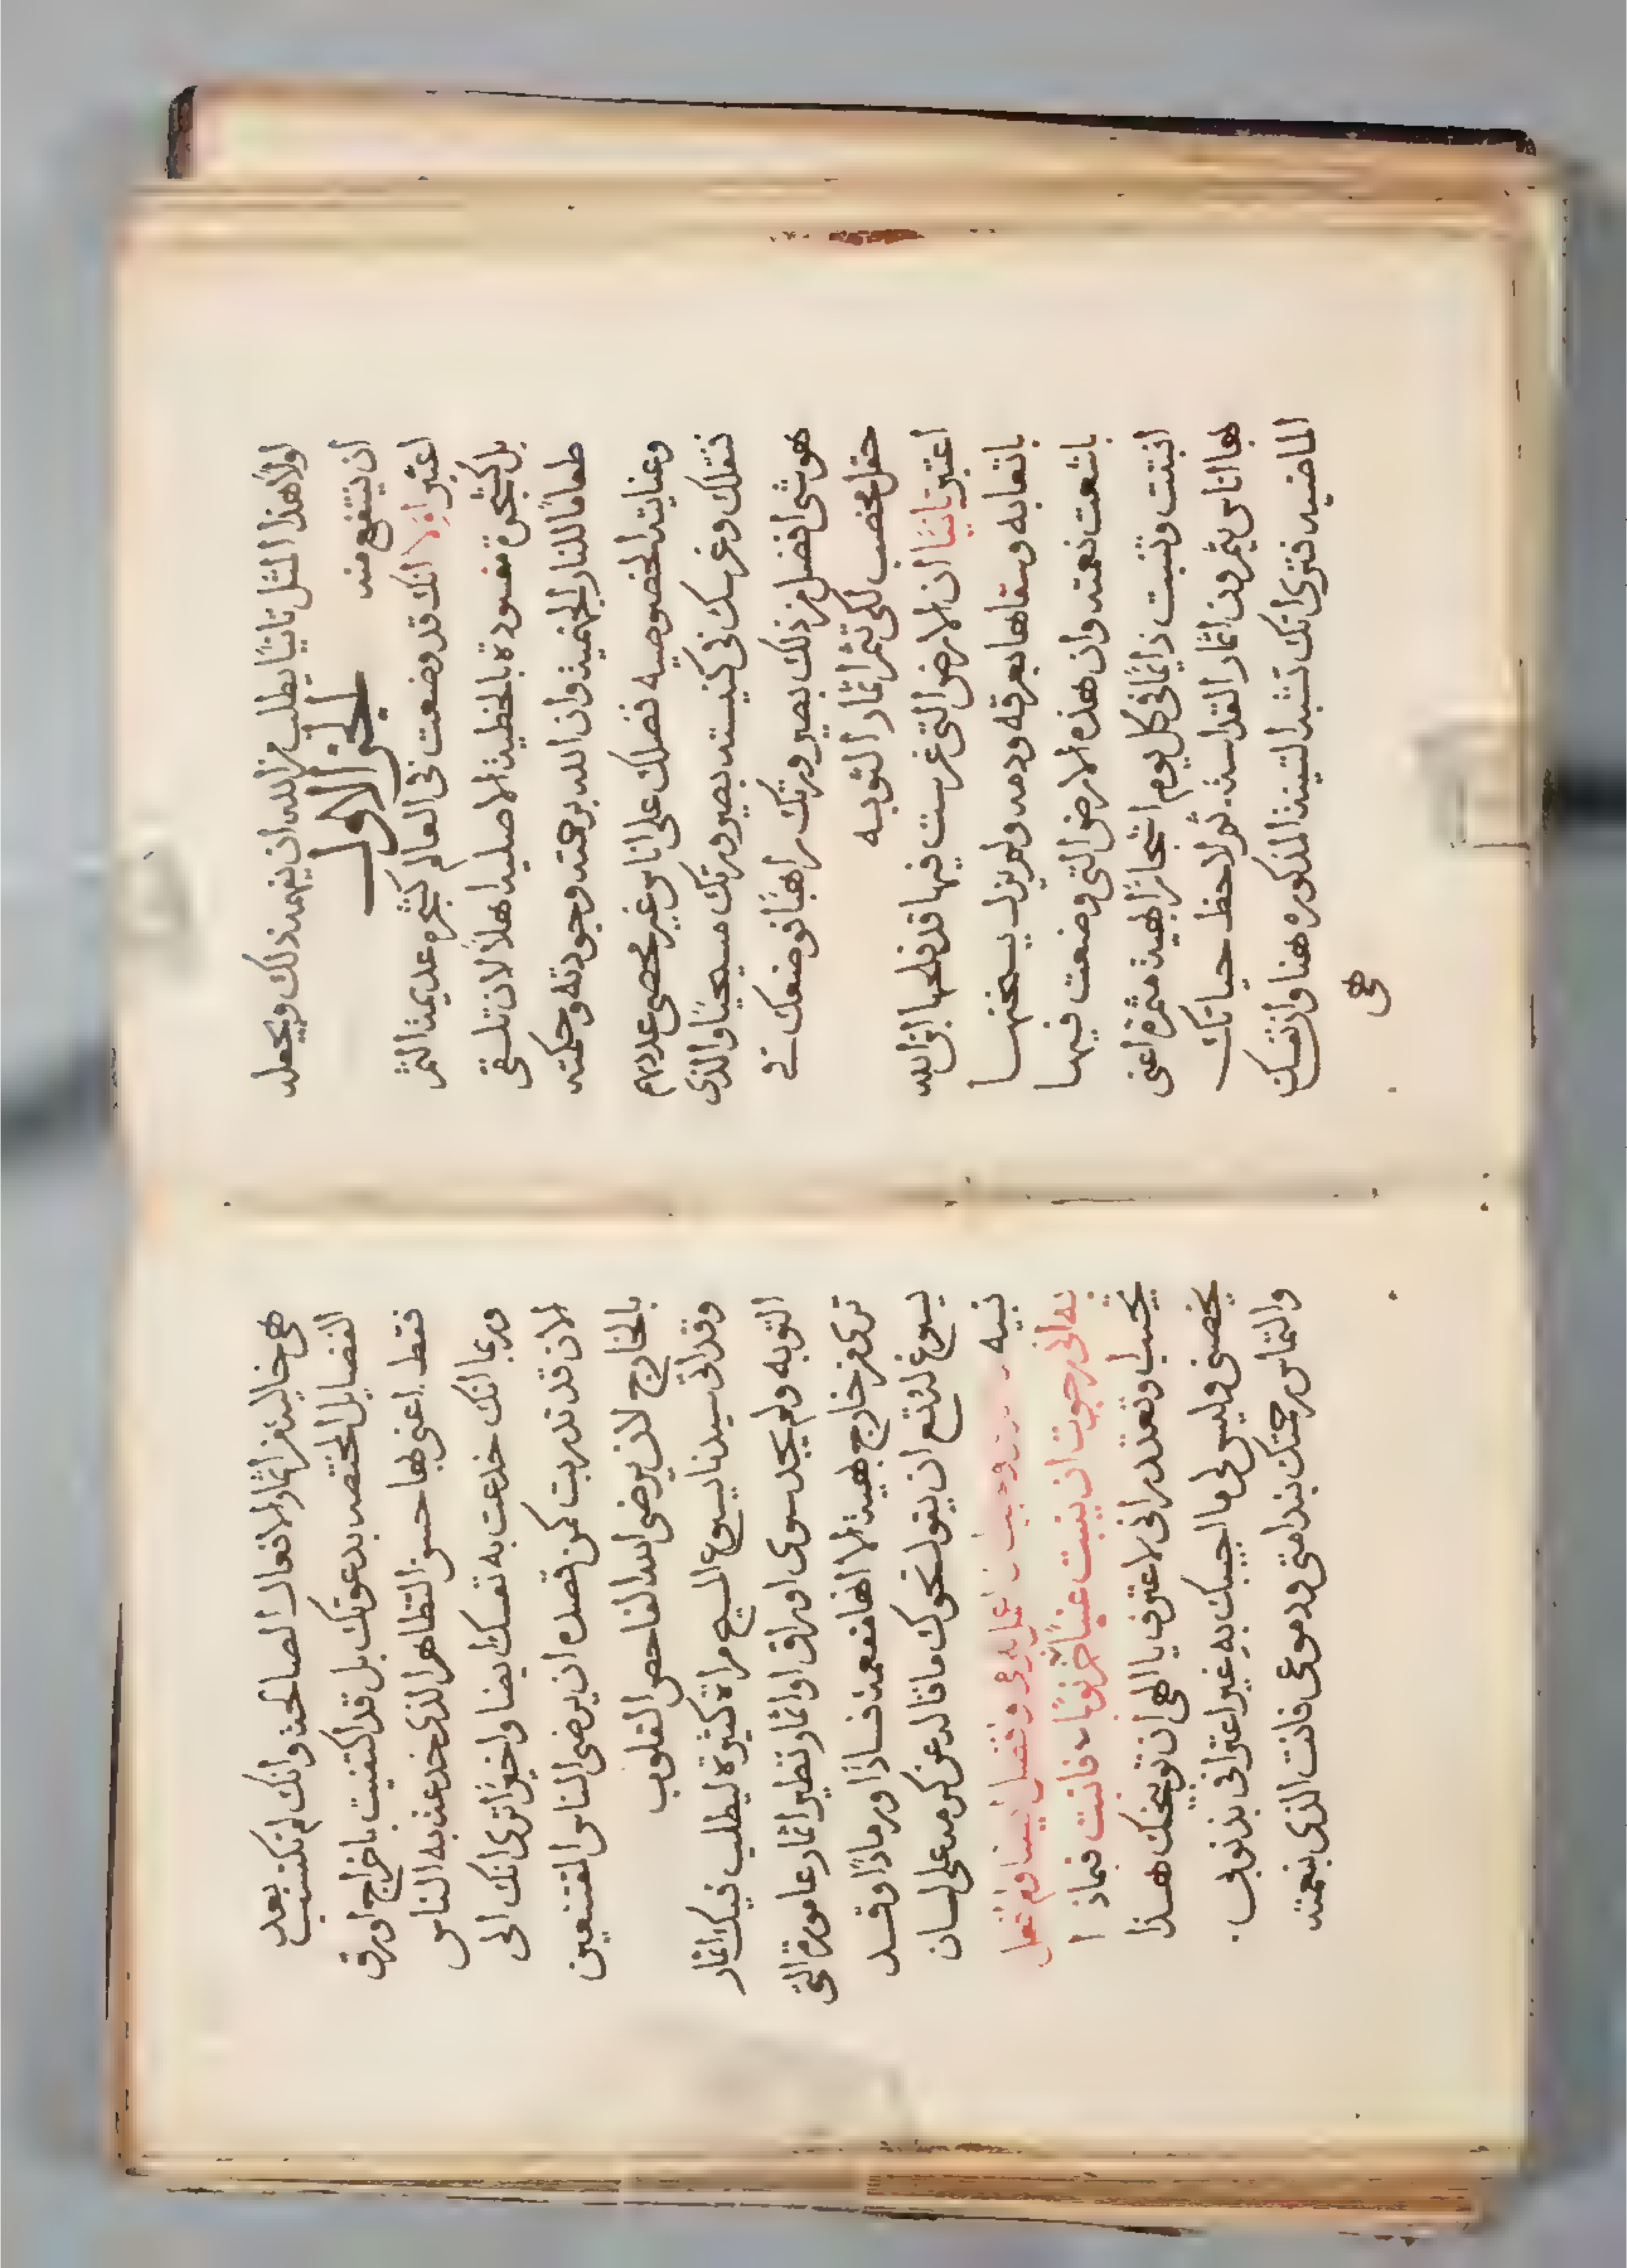 لولاهذا المثل ثانيًا يطلب من الله ان يفهمه ذلك ويجعله
ان ينتفع منه
الجز الاول
اعتبر اولا انك قد وضعت في العالم كشجره عديمة الثمر
بل كشجرة مفسودة بالخطية الاصليه اهلاً لان تلقى
طعامًا للنار الجهنمية وان الله برحمته وجودته وحكمته
وعنايته الخصوصيه فضلك على اناس غير محصى عددهم
فنقلك وغرسك في كنيسته بصيرورتك مسيحيًا والذي
هو شي افضل من ذلك بصيرورتك راهبًا فوضعك في
حقل مخصب لكي تثمر اثمار التوبه
اعتبر ثانيًا ان الارض التي غرست فيها قد فلحها ابن الله
باتعابه وسقاها بعرقه ودمه ولم يزل يسخنها
باشعت نعمته وان هذه الارض التي وضعت فيها
انبتت وتنبت دايمًا في كل يوم اشجارًا بهية مثمرة اعني
بها اناس يثمرون اثمار القداسة. ثم لاحظ حياتك
الماضيه فترى انك تشبه التينة المذكوره هنا وان نفسك
هي
هي خالية من اثمار الافعال الصالحة وانك لم تكتسب بعد
الفضايل المختصه بدعوتك بل قد اكتفيت باخراج اورق
فقط. اعني بها حسن التظاهر الذي خدعت به الناس
وربما انك خدعت به نفسك ايضا واخيرًا ترى انك الى
الان قد تدربت كمن قصده ان يرضي الناس المقتنعين
بالخارج لان يرضي الله الفاحص القلوب
وقد اتى سيدنا يسوع المسيح مراة كثيرة ليطلب فيك اثمار
التوبه ولم يجد سوى اوراق او اثمار نظير اثمار عامورة التي
ترى من خارج بهية الا انها مفعمة فسادًا ورمادًا وقد
يسوغ لمثقع ان يقول نحوك ما قاله عن كرمه على لسان
نبيه
به اني رجوت ان ينبت عنبًا خرنوبًا فانت فماذا
يجيب وتعتذر اني لاعترف يا الهي ان توبيخك هذا
يخصني وليس لي ما اجيبك به غير اعترافي بذنوبي.
والتماس رحمتك بندامتي ودموعي فانت الذي بنعمته